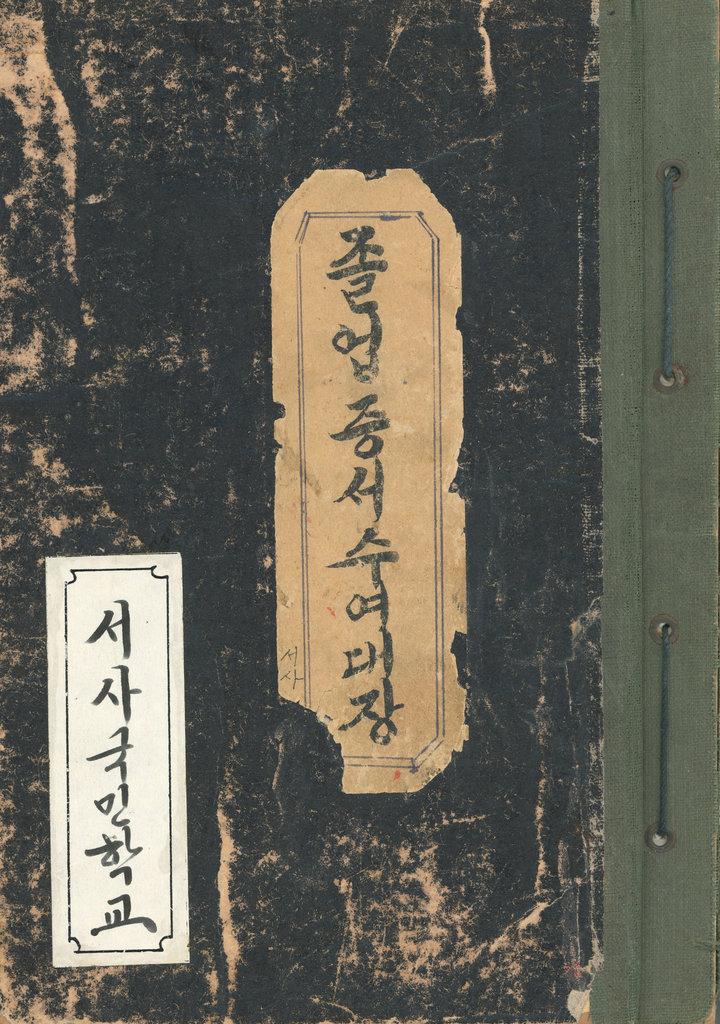 졸업증서수여대장
서사
서사국민학교